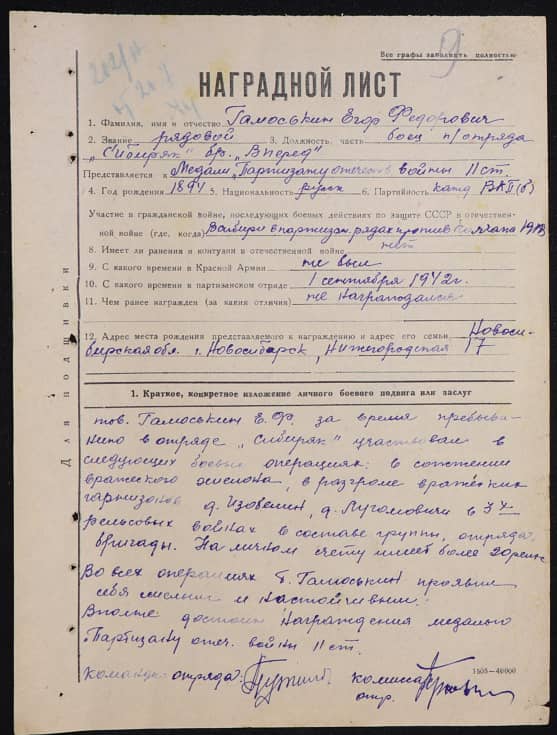 Все графы заполнять полностью
9
НАГРАДНОЙ ЛИСТ
1. Фамилия, имя и отчество Гамоськин Егор Федорович
2. Звание рядовой 3. Должность, часть боец п/отряда
„Сибиряк" бр. „Вперед"
Представляется к Медали „Партизану отечеств. войны II ст.
4. Год рождения 1894 5. Национальность русск 6. Партийность канд ВКП(б)
Участие в гражданской войне, последующих боевых действиях по защите СССР и отечествен-
ной войне (где, когда) В сибири в партизан. рядах против Колчака
8. Имеет ли ранения и контузии в отечественной войне нет
9. С какого времени в Красной Армии не был
10. С какого времени в партизанском отряде 1 сентября 1942 г.
11. Чем ранее награжден (за какия отличия) не награждался
12. Адрес места рождения представляемого к награждению и адрес его семьи Новоси-
бирская обл. г. Новосибирск, Нижегородская 17
Для подшивки
1. Краткое, конкретное изложение личного боевого подвига или заслуг
тов. Гамоськин Е.Ф. за время пребыва-
ния в отряде „Сибиряк" участвовал в
следующих боевых операциях: в сожжении
вражеского эшелона, в разгроме вражеских
гарнизонов д. д. в 3х
рельсовых войнах в составе группы, отряда,
бригады. На личном счету имеет более 20 рельс
Во всех операциях т. Гамоськин проявил
себя смелым и настойчивым.
Вполне достоин награждения медалью
„Партизану отеч. войны II ст.
Команди. отряда: комиссар
отр.
1505—40000